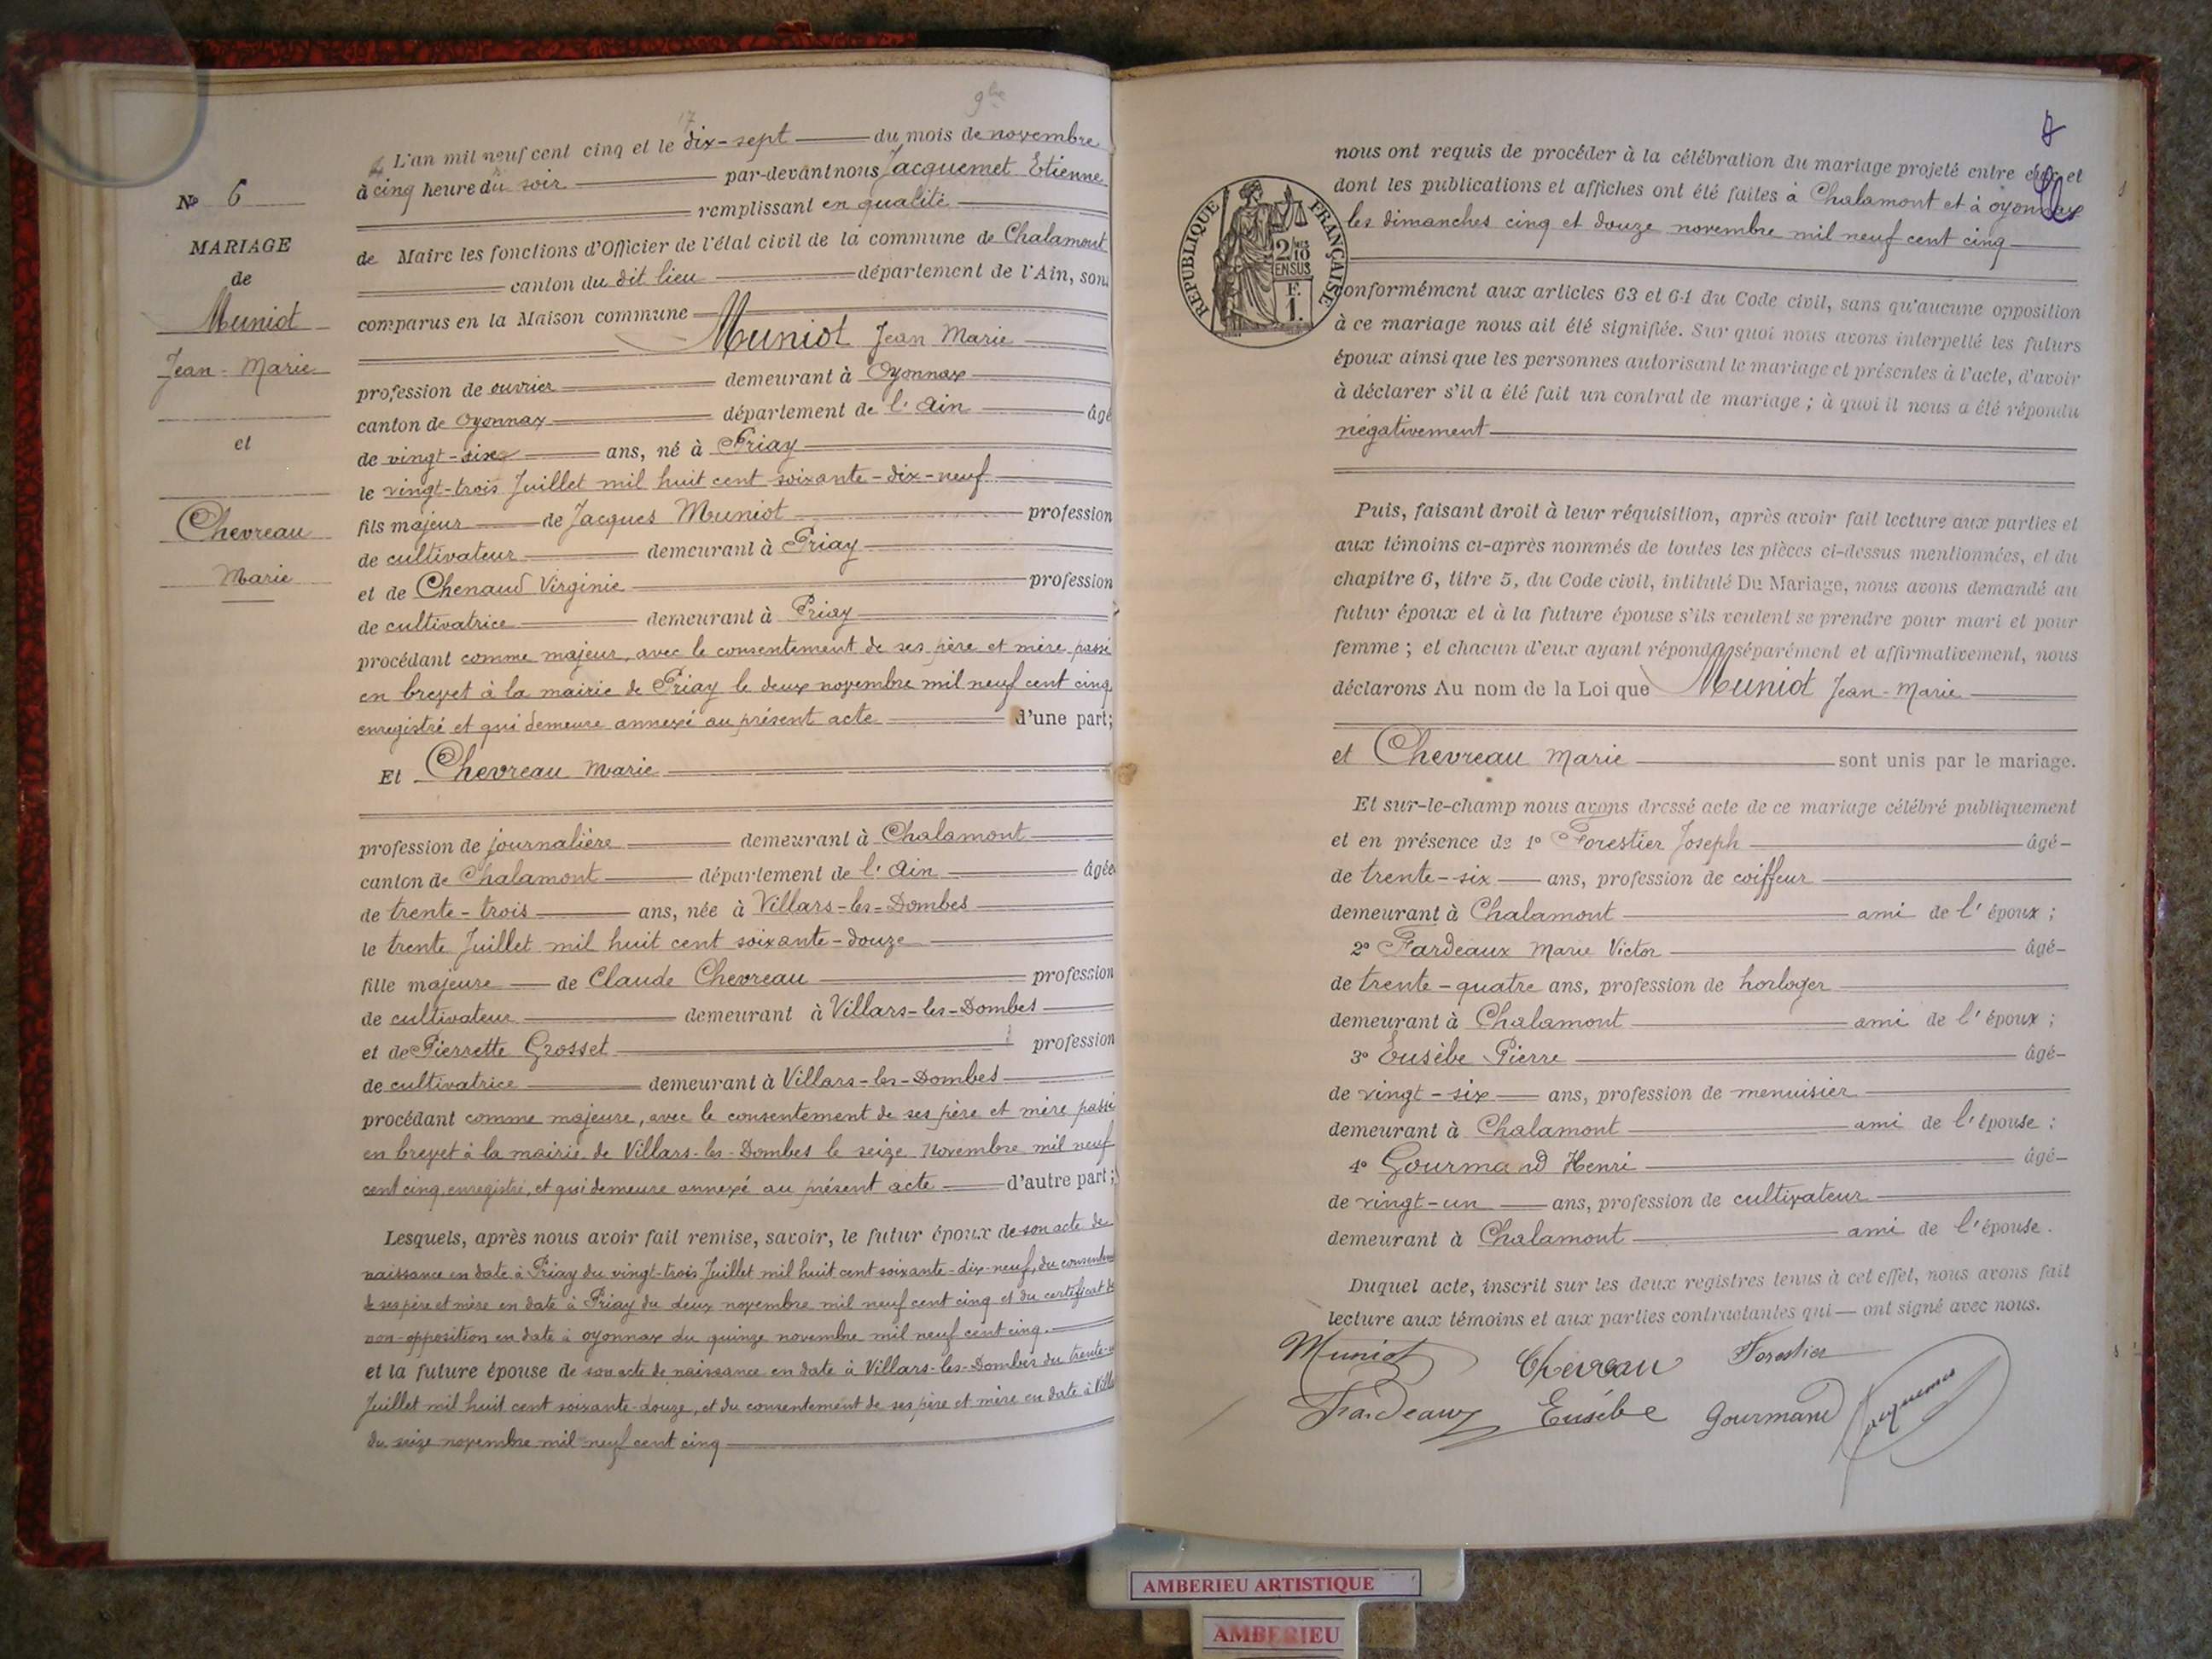 9bre
17
L'an mil neuf cent cinq et le dix-sept du mois de novembre
à cinq heure du soir par-devant nous Jacquemet Etienne
remplissant en qualité
de Maire les fonctions d'Officier de l'état civil de la commune de Chalamont
canton du dit lieu département de l'Ain, sont
comparus en la Maison commune
Muniot Jean Marie
profession de ouvrier demeurant à Oyonnax
canton de Oyonnax département de l'Ain âgé
de vingt-six ans, né à Priay
le vingt-trois Juillet mil huit cent soixante-dix-neuf
fils majeur de Jacques Muniot profession
de cultivateur demeurant à Priay
et de Chenaud Virginie profession
de cultivatrice demeurant à Priay
procédant comme majeur, avec le consentement de ses père et mère passé
en brevet à la mairie de Priay le deux novembre mil neuf cent cinq
enregistré et qui demeure annexé au présent acte d'une part;
Et Chevreau Marie
profession de journalière demeurant à Chalamont
canton de Chalamont département de l'Ain âgée
de trente-trois ans, née à Villars-les-Dombes
le trente Juillet mil huit cent soixante-douze
fille majeure de Claude Chevreau profession
de cultivateur demeurant à Villars-les-Dombes
et de Pierrette Grosset profession
de cultivatrice demeurant à Villars-les-Dombes
procédant comme majeure, avec le consentement de ses père et mère passé
en brevet à la mairie de Villars-les-Dombes le seize Novembre mil neuf
cent cinq enregistré, et qui demeure annexé au présent acte d'autre part;
Lesquels, après nous avoir fait remise, savoir, le futur époux de son acte de
naissance en date à Priay du vingt-trois Juillet mil huit cent soixante-dix-neuf, du
de ses père et mère en date à Priay du deux novembre mil neuf cent cinq et du certificat de
non-opposition en date à oyonnax du quinze novembre mil neuf cent cinq.
et la future épouse de son acte de naissance en date à Villars-les-Dombes du
Juillet mil huit cent soixante-douze, et du consentement de ses père et mère en date à
du seize novembre mil neuf cent cinq
No 6
MARIAGE
de
Muniot
Jean-Marie
et
Chevreau
Marie
8
nous ont requis de procéder à la célébration du mariage projeté entre eux et
dont les publications et affiches ont été faites à Chalamont et à oyonnax
les dimanches cinq et douze novembre mil neuf cent cinq
RÉPUBLIQUE FRANÇAISE
2/10 MES
EN SUS
F.
1.
conformément aux articles 63 et 64 du Code civil, sans qu'aucune opposition
à ce mariage nous ait été signifiée. Sur quoi nous avons interpellé les futurs
époux ainsi que les personnes autorisant le mariage et présentes à l'acte, d'avoir
à déclarer s'il a été fait un contrat de mariage ; à quoi il nous a été répondu
négativement
Puis, faisant droit à leur réquisition, après avoir fait lecture aux parties et
aux témoins ci-après nommés de toutes les pièces ci-dessus mentionnées, et du
chapitre 6, titre 5, du Code civil, intitulé Du Mariage, nous avons demandé au
futur époux et à la future épouse s'ils veulent se prendre pour mari et pour
femme ; et chacun d'eux ayant répondu séparément et affirmativement, nous
déclarons Au nom de la Loi que Muniot Jean-Marie
et Chevreau Marie sont unis par le mariage.
Et sur-le-champ nous avons dressé acte de ce mariage célébré publiquement
et en présence de 1° Forestier Joseph âgé
de trente-six ans, profession de coiffeur
demeurant à Chalamont ami de l'époux ;
2° Fardeaux Marie Victor âgé
de trente-quatre ans, profession de horloger
demeurant à Chalamont ami de l'époux ;
3° Eusèbe Pierre âgé
de vingt-six ans, profession de menuisier
demeurant à Chalamont ami de l'épouse ;
4° Gourmand Henri âgé
de vingt-un ans, profession de cultivateur
demeurant à Chalamont ami de l'épouse.
Duquel acte, inscrit sur les deux registres tenus à cet effet, nous avons fait
lecture aux témoins et aux parties contractantes qui ont signé avec nous.
Muniot Chevreau Forestier
Fardeaux Eusèbe Gourmand Jacquemet
AMBERIEU ARTISTIQUE
AMBERIEU